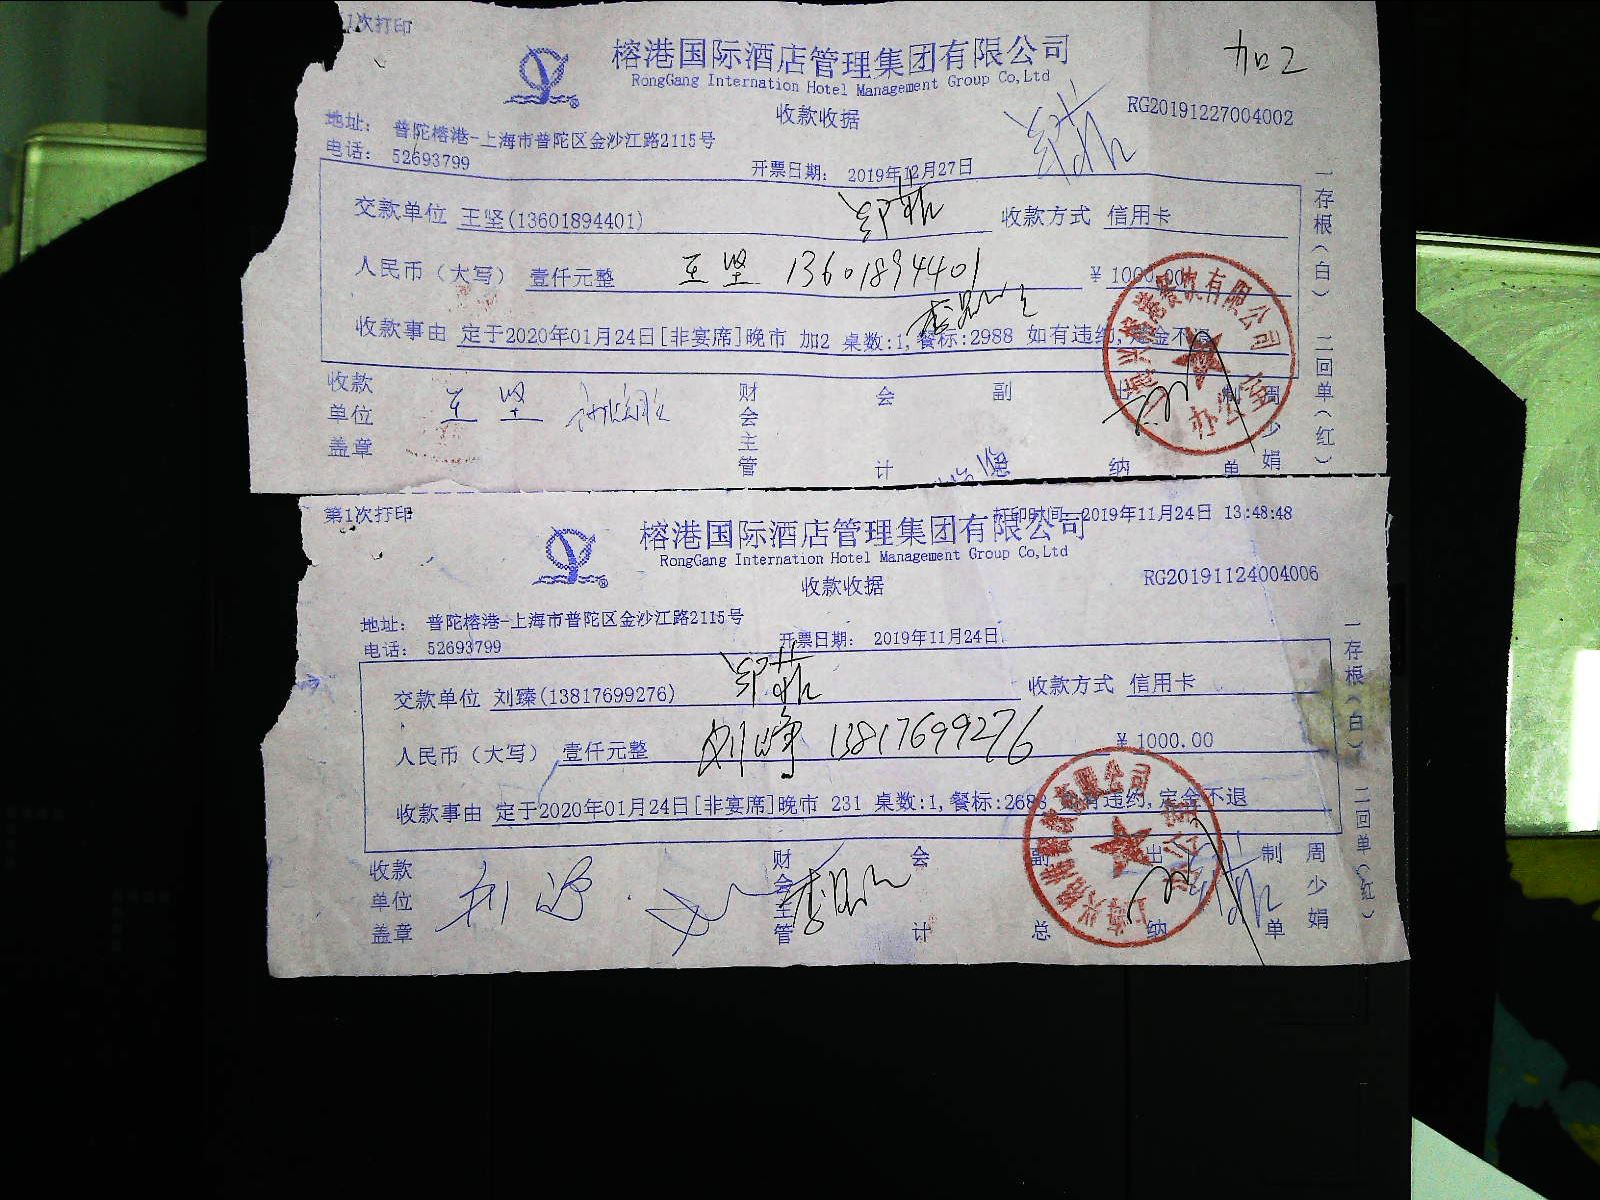 1次打印
榕港国际酒店管理集团有限公司
加2
RongGang Internation Hotel Management Group Co,Ltd
收款收据
RG20191227004002
地址： 普陀榕港-上海市普陀区金沙江路2115号
电话： 52693799
开票日期： 2019年12月27日
交款单位 王坚(13601894401) 收款方式 信用卡
人民币（大写） 壹仟元整 王坚 13601894401 ￥1000.00
收款事由 定于2020年01月24日[非宴席]晚市 加2 桌数:1,餐标:2988 如有违约,定金不退
收款单位盖章 王坚
财会主管 会计 副 出纳 制单 周少娟
一存根（白） 二回单（红）
办公室
第1次打印
打印时间 2019年11月24日 13:48:48
榕港国际酒店管理集团有限公司
RongGang Internation Hotel Management Group Co,Ltd
收款收据
RG20191124004006
地址： 普陀榕港-上海市普陀区金沙江路2115号
电话： 52693799
开票日期： 2019年11月24日
交款单位 刘臻(13817699276) 收款方式 信用卡
人民币（大写） 壹仟元整 13817699276 ￥1000.00
收款事由 定于2020年01月24日[非宴席]晚市 231 桌数:1,餐标:2688 如有违约,定金不退
收款单位盖章
财会主管 会计 副总 出纳 制单 周少娟
一存根（白） 二回单（红）